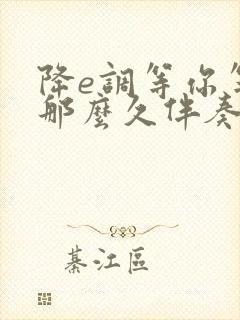 降e調等你等
那麼久伴奏
綦江區